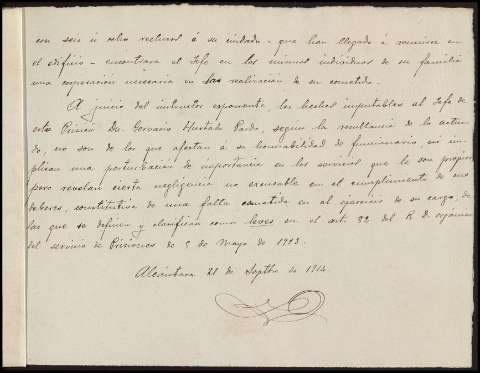 con seis u ocho reclusos á su cuidado - que han llegado á reunirse en
el edificio - encontrará el Jefe en los mismos individuos de su familia
una cooperación necesaria en la realización de su cometido.
A juicio del instructor exponente, los hechos imputables al Jefe de
esta Prisión Dn. Gervasio Hurtado Pardo, según la resultancia de lo actua
do, no son de los que afectan á su honorabilidad de funcionario, ni im
plican una perturbación de importancia en los servicios que le son propios,
pero revelan cierta negligencia no excusable en el cumplimiento de sus
deberes, constitutiva de una falta cometida en el ejercicio de su cargo, de
las que se definen y clasifican como leves en el art. 32 del R. D. orgánico
del servicio de Prisiones de 5 de Mayo de 1913.
Alcántara 21 de Septbre de 1914.